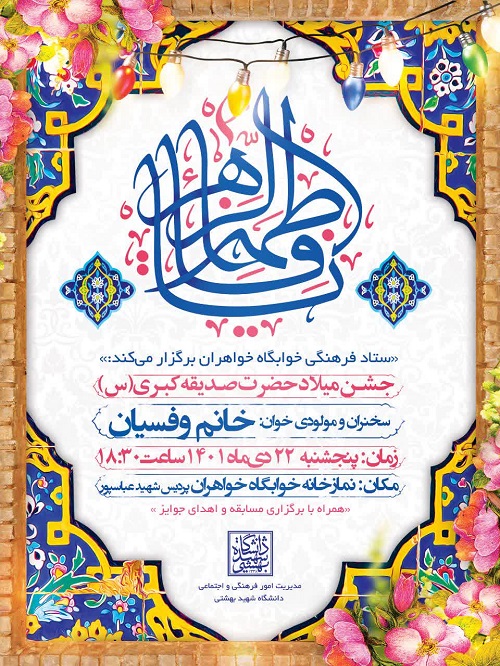 یا فاطمة الزهراء
«ستاد فرهنگی خوابگاه خواهران برگزار می‌کند:»
جشن میلاد حضرت صدیقه کبری (س)
سخنران و مولودی خوان: خانم وفسیان
زمان: پنجشنبه ۲۲ دی ماه ۱۴۰۱ ساعت ۱۸:۳۰
مکان: نمازخانه خوابگاه خواهران پردیس شهید عباسپور
«همراه با برگزاری مسابقه و اهدای جوایز»
دانشگاه شهید بهشتی
مدیریت امور فرهنگی و اجتماعی
دانشگاه شهید بهشتی